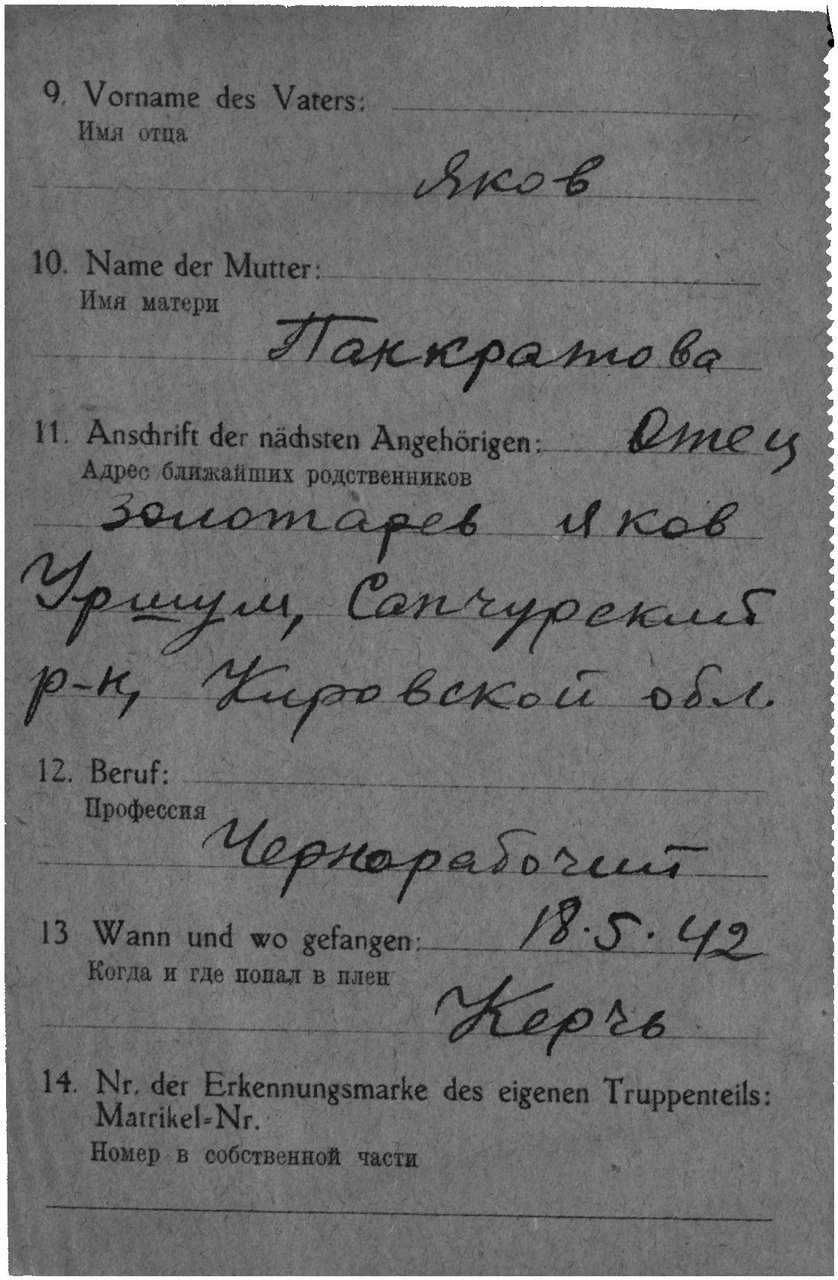 9. Vorname des Vaters:
Имя отца
Яков
10. Name der Mutter:
Имя матери
Панкратова
11. Anschrift der nächsten Angehörigen: Отец
Адрес ближайших родственников
Золотарев Яков
Уршум, Сапчурский
р-н, Кировской обл.
12. Beruf:
Профессия
Чернорабочий
13 Wann und wo gefangen: 18.5.42
Когда и где попал в плен
Керчь
14. Nr. der Erkennungsmarke des eigenen Truppenteils:
Matrikel=Nr.
Номер в собственной части